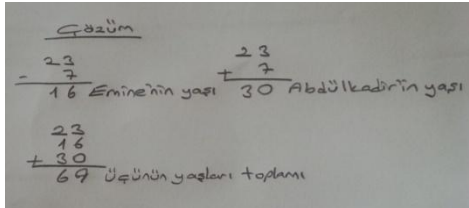 Çözüm
23
- 7
16 Emine'nin yaşı
23
+ 7
30 Abdülkadir'in yaşı
23
16
+ 30
69 üçünün yaşları toplamı